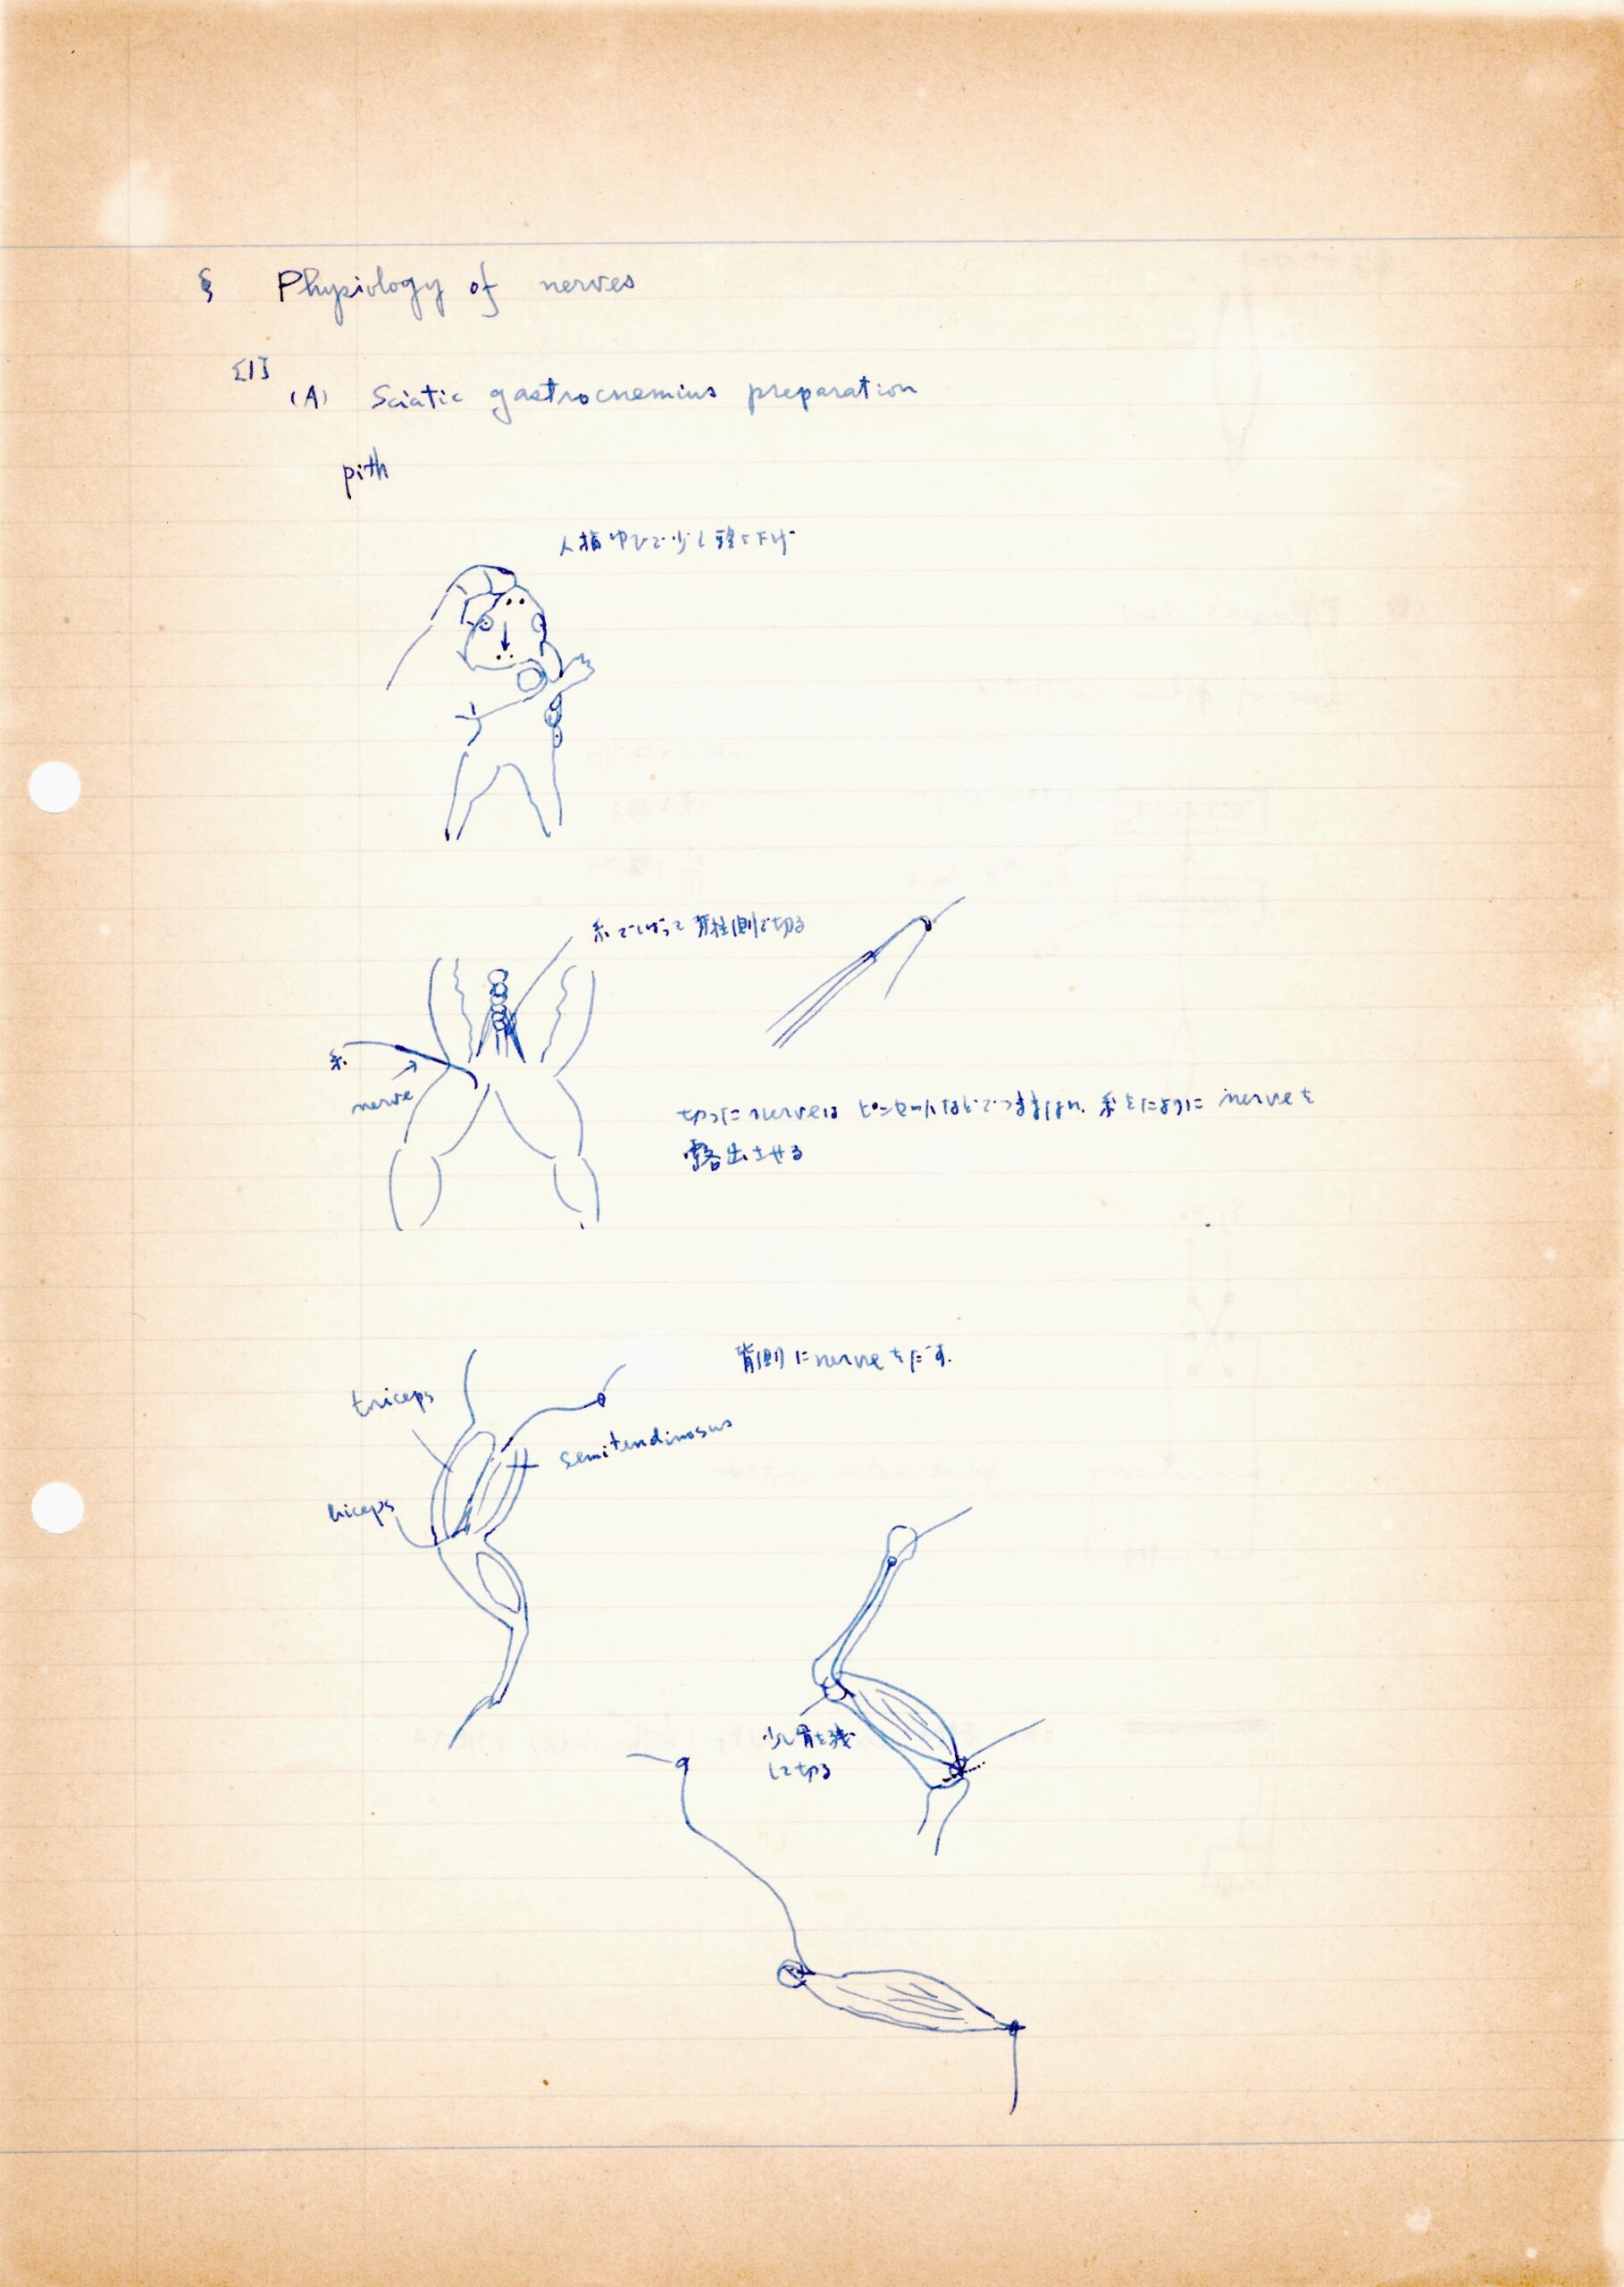 § Physiology of nerves
[1]
(A) Sciatic gastrocnemius preparation
pith
人指ゆびで少し頭を下げ
糸でしばって脊柱側で切る
糸
nerve
切った nerveは ピンセットなどでつままない。糸を nerveを
露出させる
背側にnerveをだす.
triceps
semitendinosus
biceps
少し骨を残
して切る